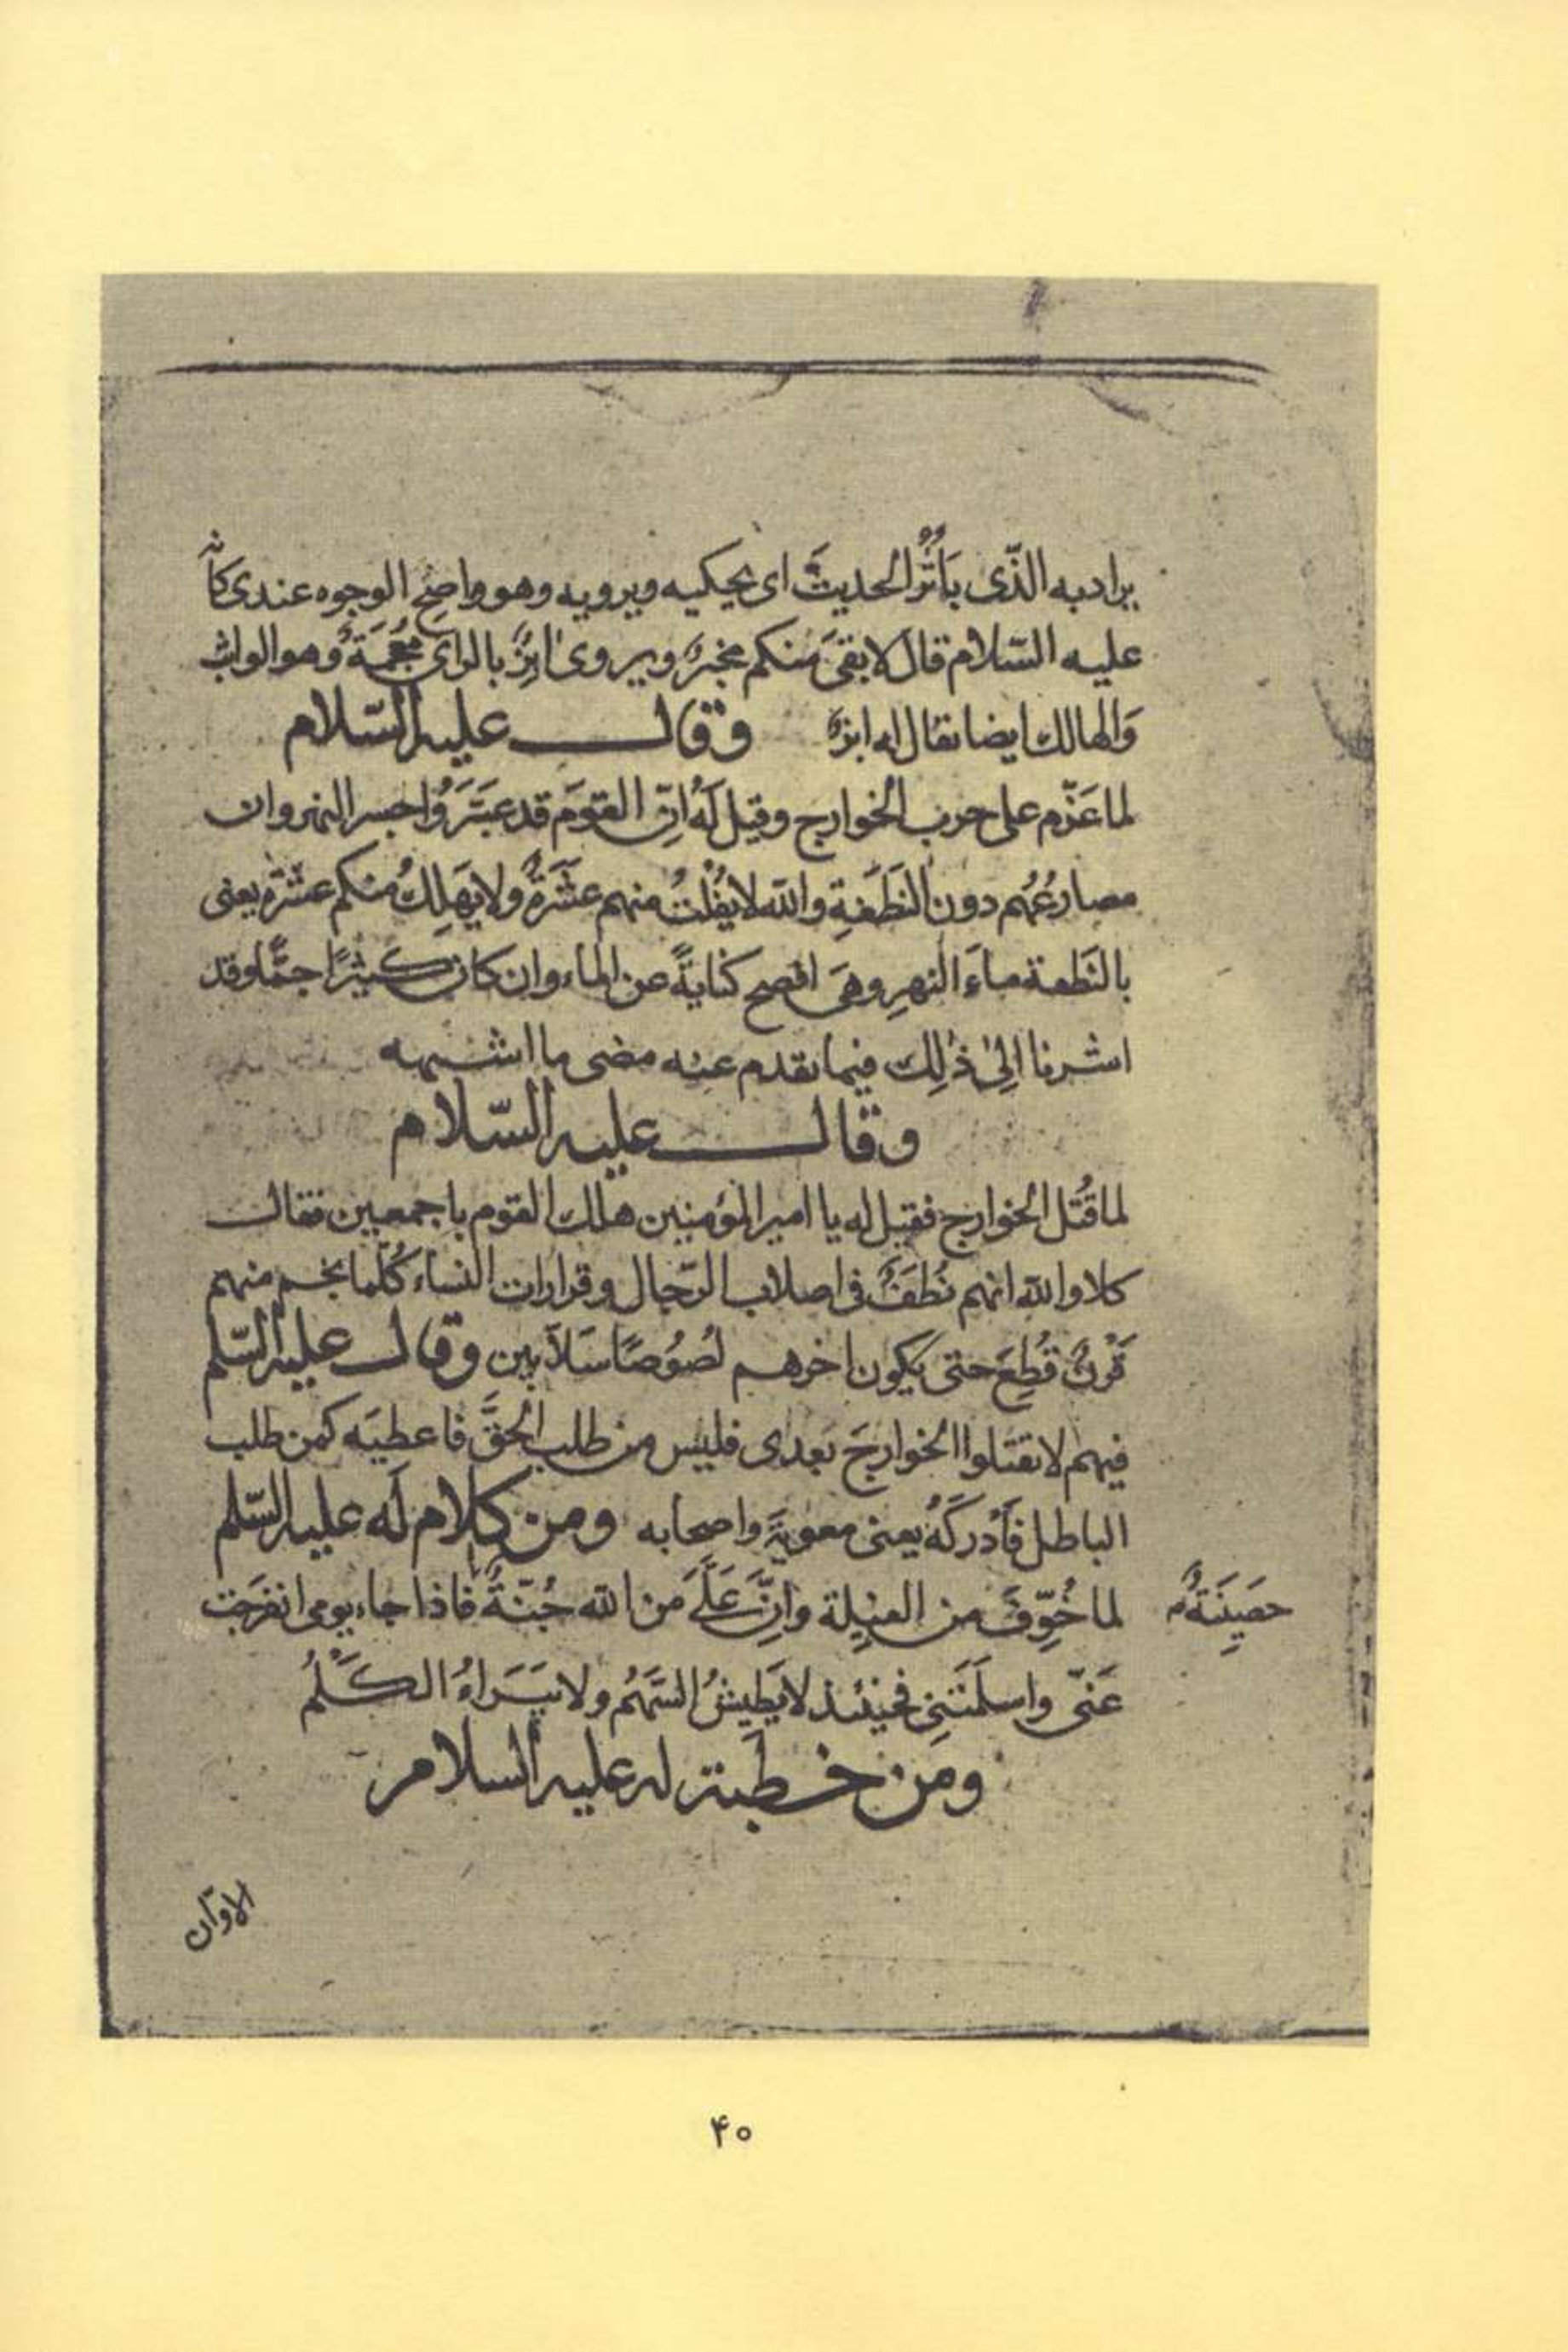 يراد به الذّى يَأثُرُ الحديثَ اى يحكيه ويرويه وهو واضح الوجوه عندى كانّه
عليه السّلام قال لا بقىَ منكم مخبرٌ ويروى ابِزٌ بالزاى مُعْجَمَةً وهو الواثب
وَالهالك ايضا يقال له ابزٌ وقال عليه السّلام
لما عَزَم على حرب الخوارج وقيل لَهُ انّ القومَ قد عَبَرَوُا جسر النهروان
مصارعُهُم دون النّطفَةِ والله لا يُفْلتُ منهم عَشَرَةٌ ولا يَهلِكُ منكم عشرة يعنى
بالنّطفة ماءَ النهرِ وهىَ افصح كنايةً عن الماء وان كان كثيرًا جمًّا وقد
اشرنا الِىٰ ذٰلِك فيما تقدم عنه مضى ما اشبهه
وقال عليه السّلام
لما قُتل الخوارج فقيل له يا امير المؤمنين هلك القوم باجمعين فقال
كلا والله انهم نُطَفٌ فى اصلاب الرّجال وقرارات النساء كُلّما نجم منهم
قَرْنٌ قُطِعَ حتى يكون اخرهم لصُوُصًا سَلاّبين وقال عليه السّلم
فيهم لا تقتلوا الخوارجَ بَعدى فليس من طلب الحقَّ فاخطاَه كمن طلب
الباطل فَاَدركَهُ يعنى معويةَ واصحابه ومن كلام لَه عليه السّلم
لما خُوِّفَ من الغيلِة وانَّ عَلَىَّ من الله جُنّةً فاذا جاء يومى انفرَجَت
حَصِينَةً
عَنّى واسلَمَتنىِ فحينئذ لا يَطيشُ السَّهمُ ولا يَبَرَاءُ الكَلْمُ
ومن خطبة له عليه السلام
الا وانّ
۴۰